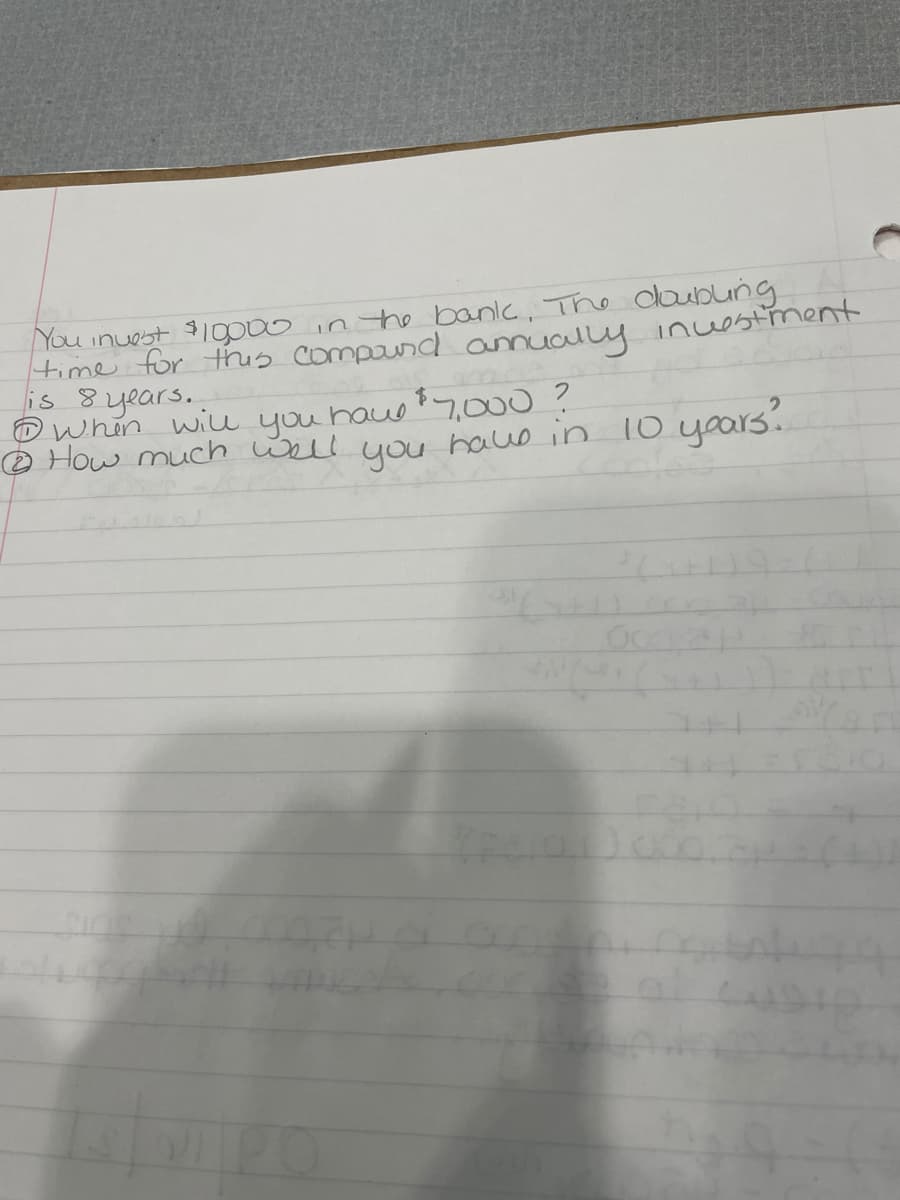 You invest $10,000 in the bank. The doubling
time for this compound annually investment
is 8 years.
① When will you have $7,000?
② How much well you have in 10 years?